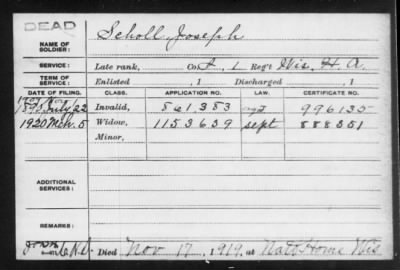 DEAD
NAME OF SOLDIER: Scholl, Joseph
SERVICE: Late rank, Co. L, 1 Reg't Wis. H. A.
TERM OF SERVICE: Enlisted , 1 Discharged , 1
DATE OF FILING. CLASS. APPLICATION NO. LAW. CERTIFICATE NO.
July 22 Invalid, 861,383 996135
1920 Mch. 5 Widow, 1153639 Sept 888351
Minor,
ADDITIONAL SERVICES:
REMARKS:
Died Nov 17, 1919, at Natl Home Wis